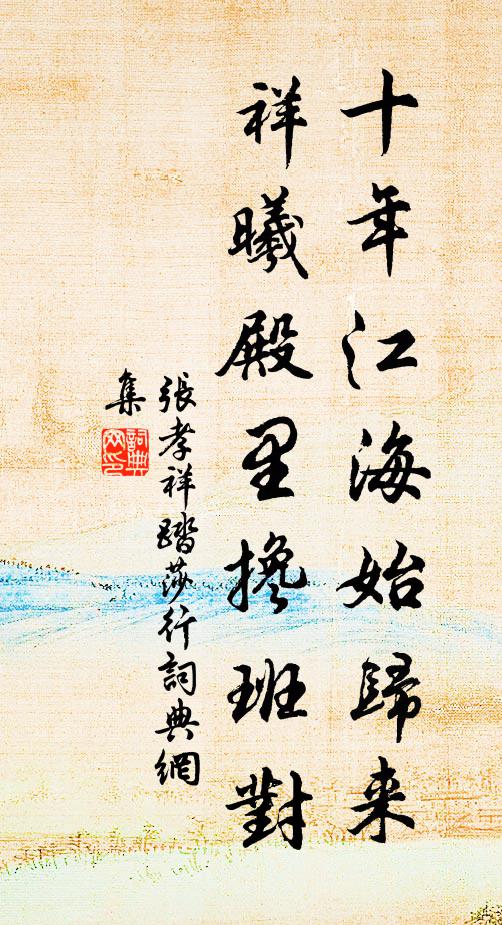 十年江海始歸来
祥曦殿里攙班對
張孝祥踏莎行詞典網
集
詞典
网印